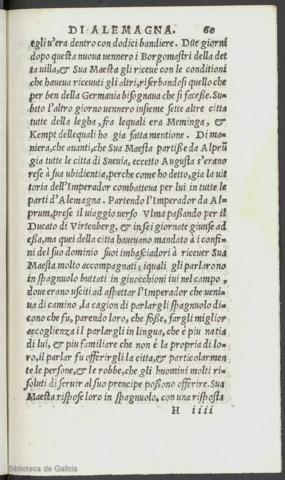 DI ALEMAGNA. 60
egli v'era dentro con dodici bandiere. Due giorni
dopo questa nuova vennero i Borgomastri della det
ta villa, & Sua Maesta gli riceve con le conditioni
che haveva ricevuti gli altri, riserbandosi quello che
per ben della Germania bisognava che si facesse. Su-
bito l'altro giorno vennero insieme sette altre citta
tutte della legha, fra lequali era Meminga, &
Kempt dellequali ho gia fatta mentione. Di ma-
niera, che avanti, che Sua Maesta partisse da Alprũ
gia tutte le citta di Suevia, eccetto Augusta s'erano
rese à sua ubidientia, perche come ho detto, gia la vit
toria dell'Imperador combatteva per lui in tutte le
parti d'Alemagna. Partendo l'Imperador da Al-
prum, prese il viaggio verso Vlma passando per il
Ducato di Virtenberg, & in sei giornate giunse ad
essa, ma quei della citta havevano mandato à i confi-
ni del suo dominio suoi imbasciadori à ricever Sua
Maesta molto accompagnati, iquali gli parlarono
in spagnuolo buttati in ginocchioni ivi nel campo,
dove erano usciti ad aspettar l'Imperador che veni-
va di camino, la cagion di parlargli spagnuolo di-
cono che fu, parendo loro, che fosse, fargli miglior
accoglienza il parlargli in lingua, che è piu natia
di lui, & piu familiare che non è la propria di lo-
ro, il parlar fu offerirgli la citta, & particolarmen
te le persone, & le robbe, che gli huomini molti ri-
soluti di servir al suo prencipe possono offerire. Sua
Maesta rispose loro in spagnuolo, con una risposta
H iiii
Biblioteca de Galicia